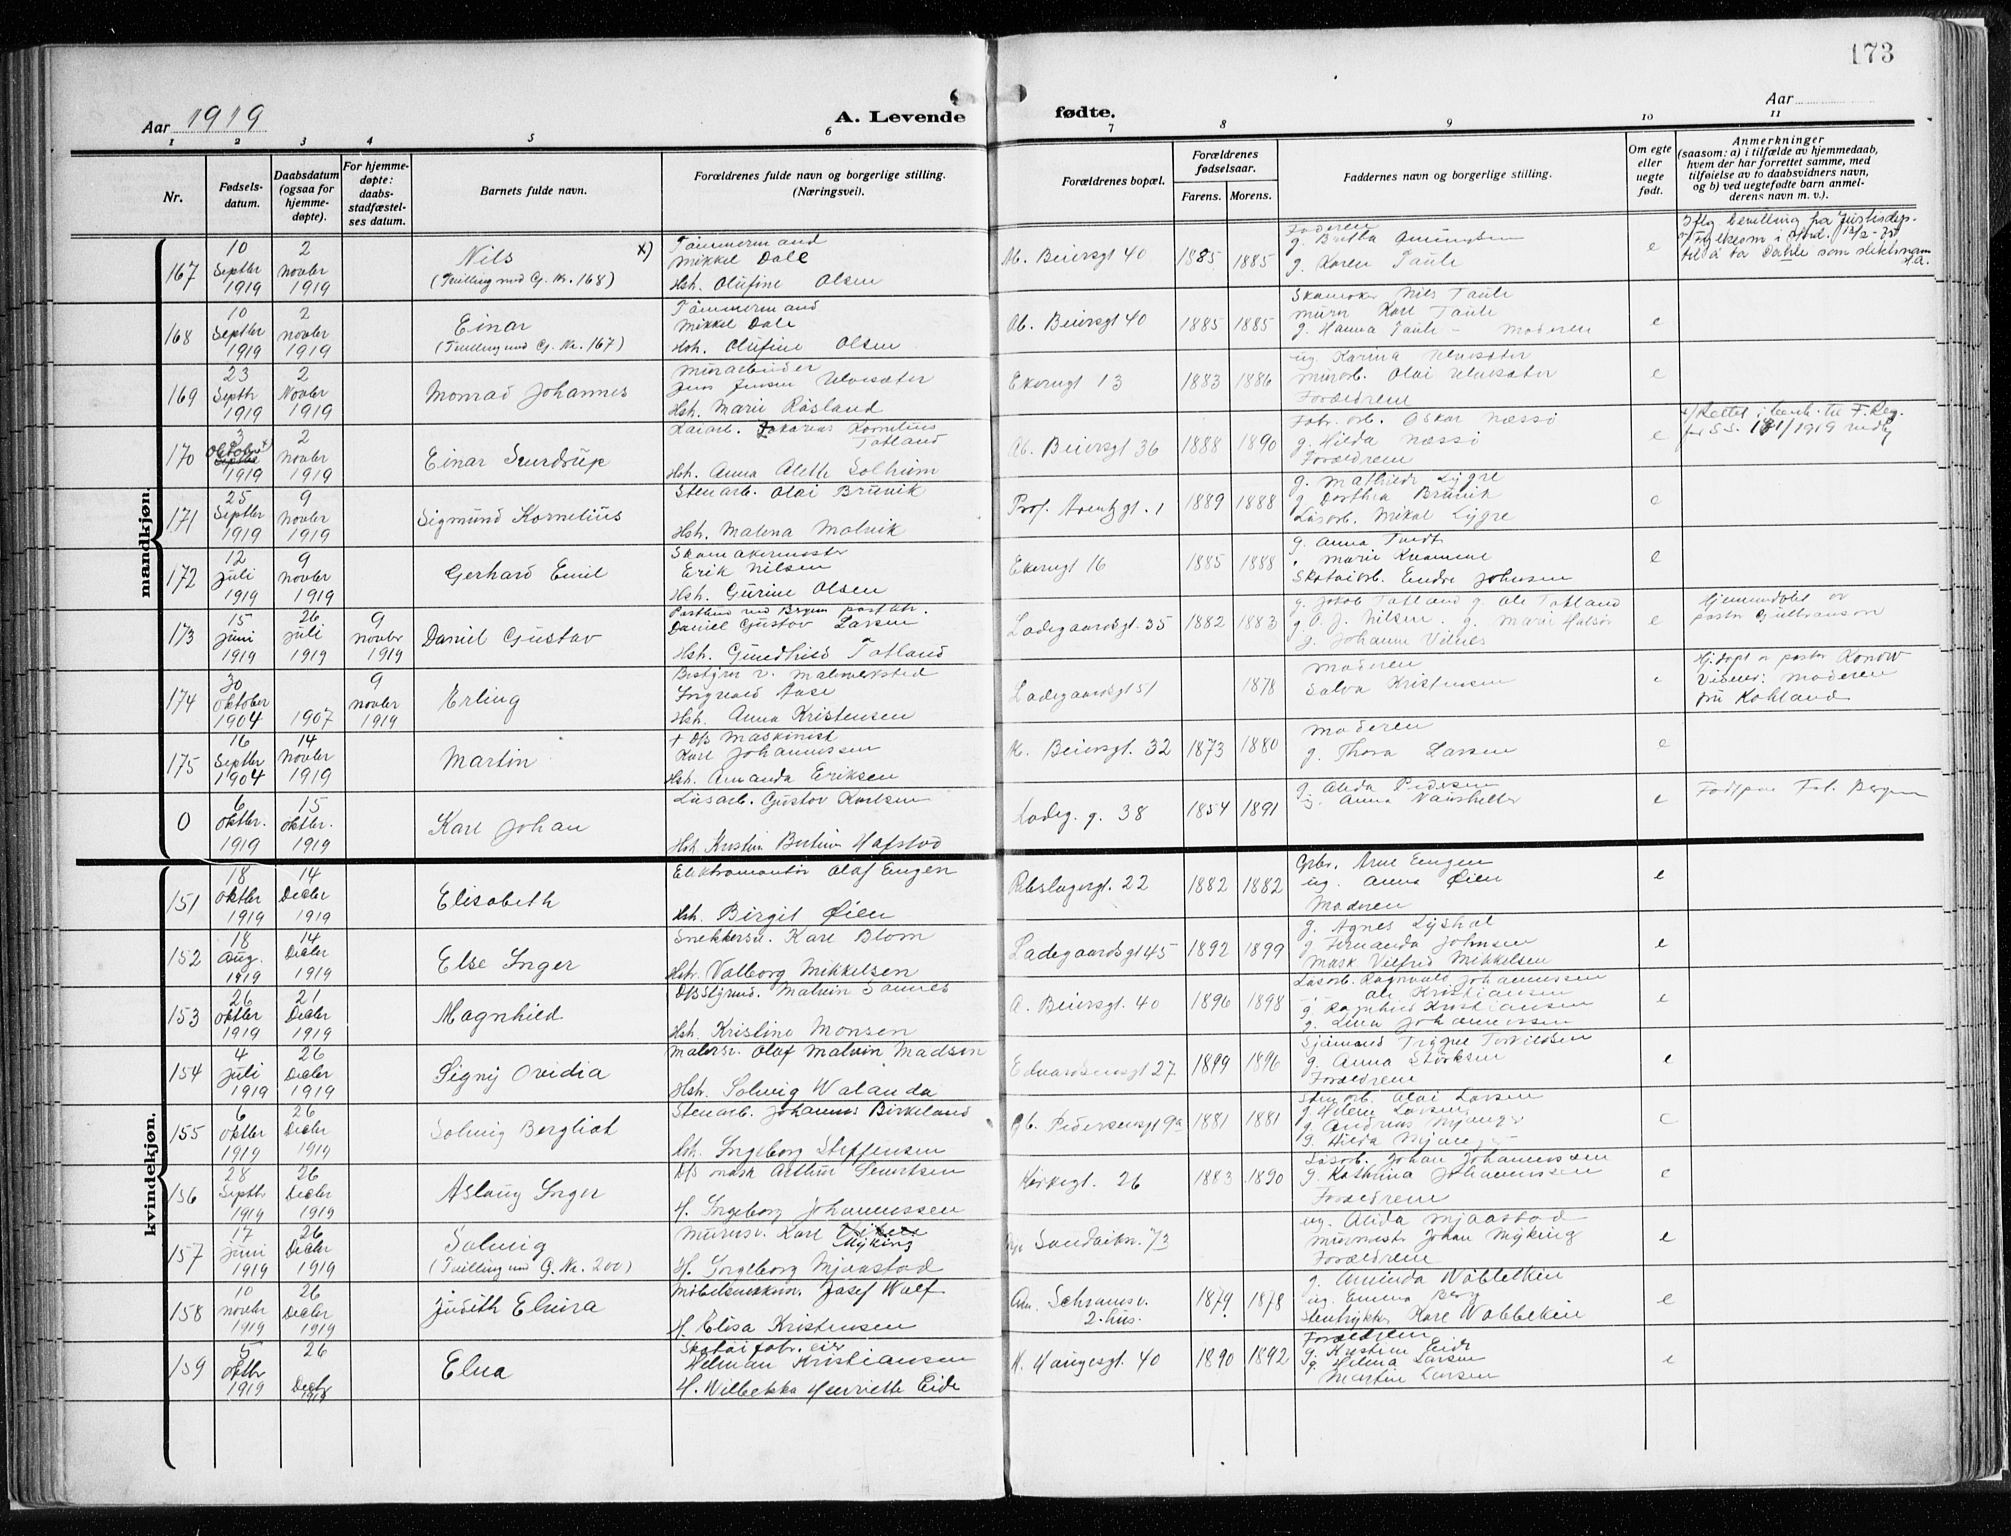 173
Aar 1919
A. Levende fødte.
Aar
1 2 3 4 5 6 7 8 9 10 11
Nr.
Fødsels-
datum.
Daabsdatum
(ogsaa for
hjemme-
døpte).
For hjemme-
døpte:
daabs-
stadfæstel-
ses datum.
Barnets fulde navn.
Forældrenes fulde navn og borgerlige stilling.
(Næringsvei).
Forældrenes bopæl.
Forældrenes
fødselsaar.
Farens. Morens.
Faddernes navn og borgerlige stilling.
Om egte
eller
uegte
født.
Anmerkninger
(saasom: a) i tilfælde av hjemmedaab,
hvem der har forrettet samme, med
tilføielse av to daabsvidners navn,
og b) ved uegtefødte barn anmel-
derens navn m. v.).
mandkjøn.
167
10 Septbr 1919
2 Novbr 1919
Nils x)
(Tvilling med G. Nr. 168)
Tømmermand
Mikkel Dale
Hst. Olufine Olsen
Ab. Beiersgt 40
1885 1885
Faderen
g. Britta Amundsen
g. Karen Taule
e
Iflg bevilling fra Justisdep.
til å ta Dahle som slektsnavn
168
10 Septbr 1919
2 Novbr 1919
Einar
(Tvilling med G. Nr. 167)
Tømmermand
Mikkel Dale
Hst. Olufine Olsen
Ab. Beiersgt 40
1885 1885
Skomaker Nils Taule
Murer Karl Taule
g. Hanna Taule - Moderen
e
169
23 Septbr 1919
2 Novbr 1919
Monrad Johannes
Minearbeider
Jens Jensen Ulvesæter
Hst. Marie Røsland
Ekerngt 13
1883 1886
ug. Karina Ulvesæter
Minearb. Olai Ulvesæter
Forældrene
e
170
3 Oktober x) Septbr 1919
2 Novbr 1919
Einar Sundrup
Kaiarb. Zakarias Kornelius
Totland
Hst. Anna Alette Solheim
Ab. Beiersgt 36
1888 1890
Fabr. arb. Oskar Næssø
g. Hilda Næssø
Forældrene
e
x) Rettet i henh. til F. Reg.
171
25 Septbr 1919
9 Novbr 1919
Sigmund Kornelius
Stenarb. Olai Brunvik
Hst. Malena Malvik
1889 1888
g. Mathilde Lygre
g. Dorthea Brunvik
Løsarb. Mikal Lygre
e
172
12 Juli 1919
9 Novbr 1919
Gerhard Emil
Skomakermester
Erik Nilsen
Hst. Gurine Olsen
Ekerngt 16
1885 1888
g. Anna Tvedt
" Marie Kvamme
Skotøiarb. Endre Johnsen
e
173
15 Juni 1919
26 Juli 1919
9 Novbr 1919
Daniel Gustav
Postbud ved Bergens postktr.
Daniel Gustav Larsen
Hst. Gundhild Totland
Ladegaardsgt. 35
1882 1883
g. Jakob Totland g. Ole Totland
g. O. J. Nilsen. g. Marie Halsør
g. Johanna Vilnes
e
Hjemmedøbt av
pastor Gulbranson
174
30 Oktober 1904
1907
9 Novbr 1919
Erling
Bestyrer v. Malmverksted
Ingvald Aase
Hst. Anna Kristensen
Ladegaardsgt 51
1878
Moderen
Salva Kristensen
e
Hj.døpt av pastor Konow
Vidner: Moderen
fru Kobland
175
16 Septbr 1904
14 Novbr 1919
Martin
† D/S Maskinist
Karl Johannessen
Hst. Amanda Eriksen
K. Beiersgt. 32
1873 1880
Moderen
g. Thora Larsen
e
0
6 Oktbr. 1919
15 Oktbr. 1919
Karl Johan
Løsarb. Gustav Karlsen
Hst Kristin Bertine Hafstad
Ladeg. g. 38
1854 1891
g. Alida Pedersen
e
kvindekjøn.
151
18 Oktbr 1919
14 Decbr 1919
Elisabeth
Elektromontør Olaf Engen
Hst. Birgit Øien
Rebslagergt. 22
1882 1882
Grbr. Arne Engen
ug. Anna Øien
Moderen
e
152
18 Aug. 1919
14 Decbr 1919
Else Inger
Snekkersv. Karl Blom
Hst. Valborg Mikkelsen
Ladegaardsgt 45
1892 1899
g. Agnes Lyshol
g. Fernanda Johnsen
Mask Vilfred Mikkelsen
e
153
26 Oktbr 1919
21 Decbr 1919
Magnhild
D/S Styrmd. Malvin Sannes
Hst. Kristine Monsen
A. Beiersgt. 40
1896 1898
Løsarb. Ragnvald Johannessen
" Ole Kristiansen
g. Ragnhild Kristiansen
g. Lina Johannessen
e
154
4 Juli 1919
26 Decbr 1919
Signy Ovidia
Malersv. Olaf Malvin Madsen
Hst. Solveig Walanda
Edvardsensgt 27
1899 1896
Sjømand Trygve Torkildsen
g. Anna Størksen
Forældrene
e
155
6 Oktbr 1919
26 Decbr 1919
Solveig Bergliot
Stenarb. Johannes Birkeland
Hst. Ingeborg Steffensen
Ob. Pedersensgt 9a
1881 1881
Stenarb. Olai Larsen
g. Helene Larsen
g. Andreas Mjanger
g. Hilda Mjanger
e
156
28 Septbr 1919
26 Decbr 1919
Aslaug Inger
D/S mask Arthur Sivertsen
H. Ingeborg Johannessen
Kirkegt. 26
1883 1890
Løsarb. Johan Johannessen
g. Kathrina Johannessen
Forældrene
e
157
17 Juni 1919
26 Decbr 1919
Solveig
(Tvilling med G. Nr. 200)
Murersv. Karl
Myking
H. Ingeborg Mjaastad
Nye Sandviksv. 73
ug. Alida Mjaastad
Murmestr. Johan Myking
Forældrene
e
158
10 Novbr 1919
26 Decbr 1919
Judith Elvira
Møbelsnekkerm. Josef Wolf
H. Elisa Kristensen
Am. Schramsv.
2. hus.
1879 1878
g. Aminda Wobbekin
ug. Emma Berg
Stentrykker Karl Wobbekin
e
159
5 Oktbr 1919
26 Decbr 1919
Elna
Skotøifabr. eier
Helman Kristiansen
H. Wilbekka Henriette Eide
H. Haugesgt. 40
1890 1892
Forældrene
g. Kristine Eide
g. Helena Larsen
Martin Larsen
e